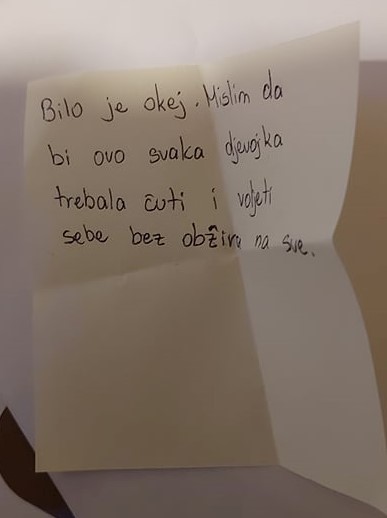 Bilo je okej. Mislim da
bi ovo svaka djevojka
trebala čuti i voljeti
sebe bez obžira na sve.